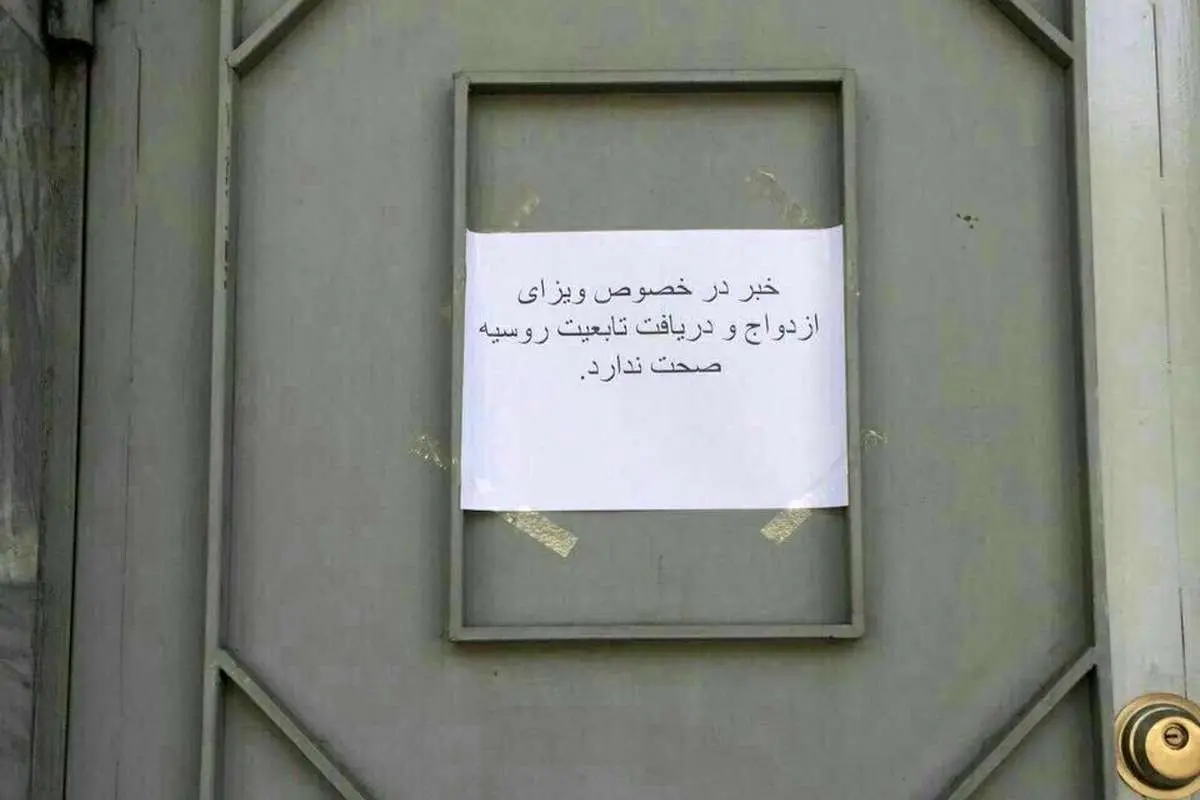 خبر در خصوص ویزای
ازدواج و دریافت تابعیت روسیه
صحت ندارد.